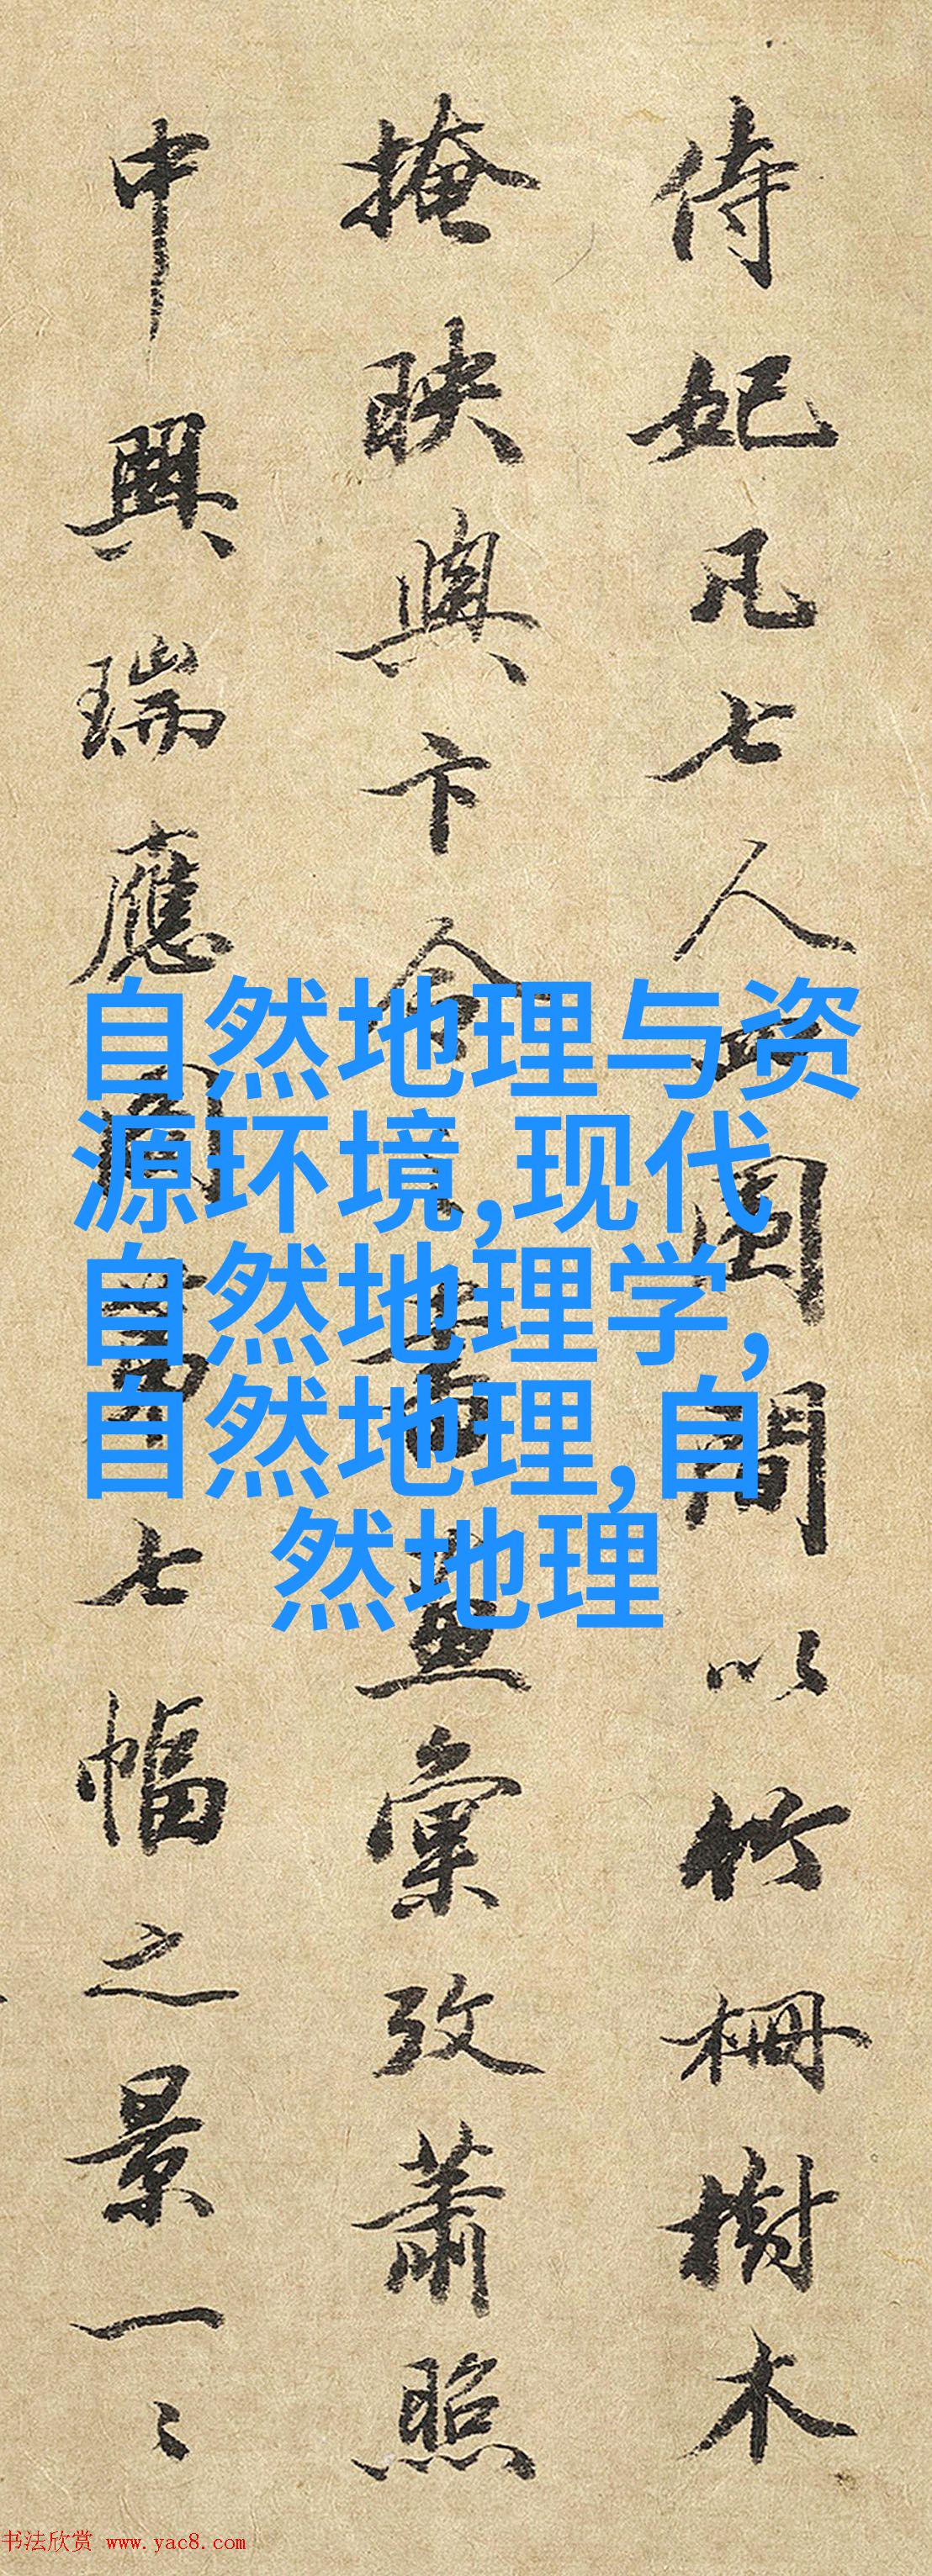 侍妃凡七人園間以竹柵樹木
掩映與卞令書畫彙攷蕭照
中興瑞應圖第七幅之景一〻
自然地理与资
源环境,现代
自然地理学,
自然地理,自
然地理
书法欣赏 www.yac8.com